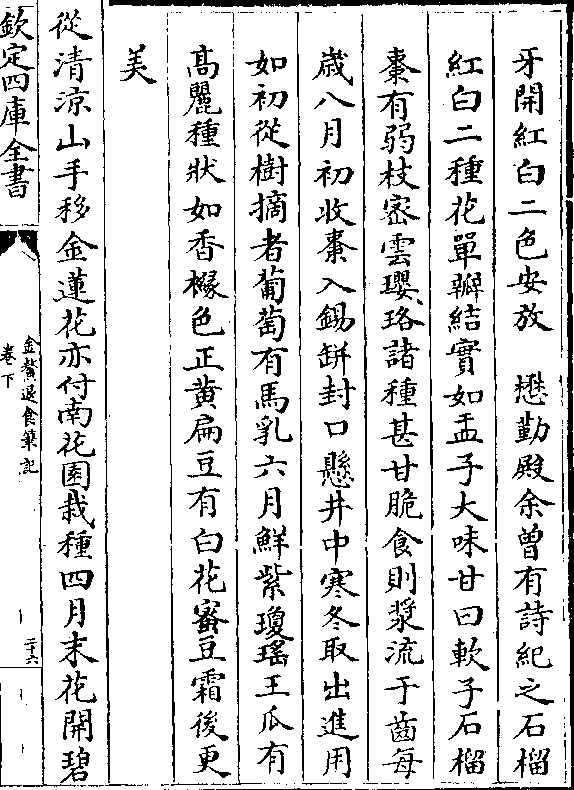 牙開紅白二色安放　懋勤殿余曾有詩紀之石榴
紅白二種花單瓣結實如盂子大味甘曰軟子石榴
棗有弱枝密雲瓔珞諸種甚甘脆食則漿流于齒每
歳八月初收棗入錫缾封口懸井中寒冬取出進用
如初從樹摘者葡萄有馬乳六月鮮紫瓊瑤王瓜有
髙麗種狀如香櫞色正黄扁豆有白花蜜豆霜後更
美
從清涼山手移金蓮花亦付南花園栽種四月末花開碧
欽定四庫全書
金鰲退食筆記
卷下
二十六